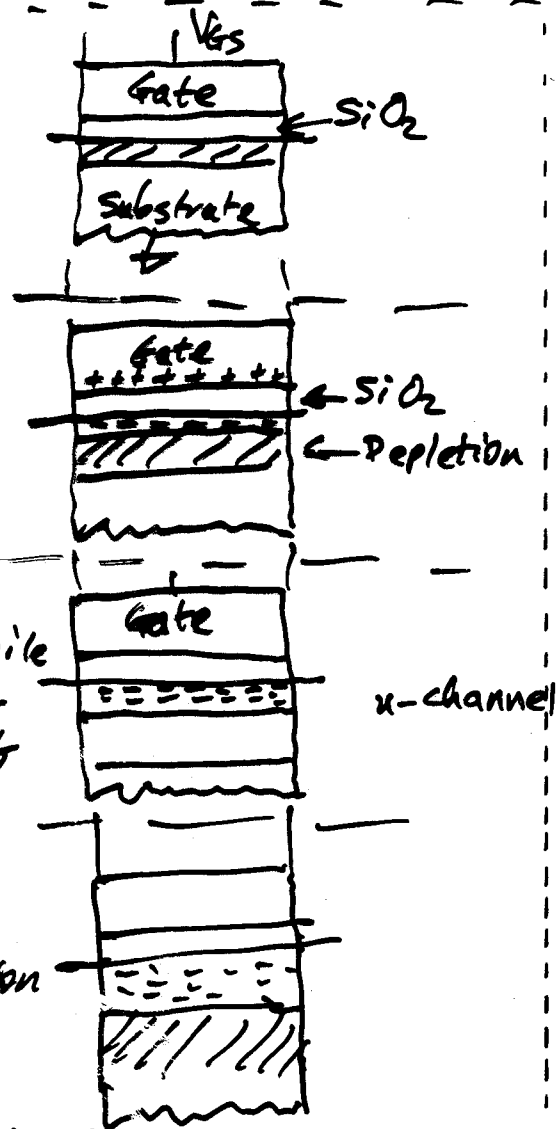 VGS
Gate
SiO2
Substrate
Gate
+ + + + + + + +
SiO2
Depletion
Gate
n-channel